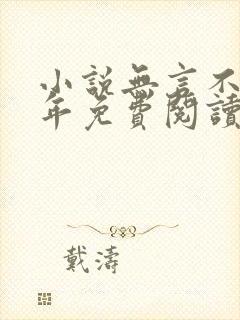 小說無言不
年免費閱讀
戴濤